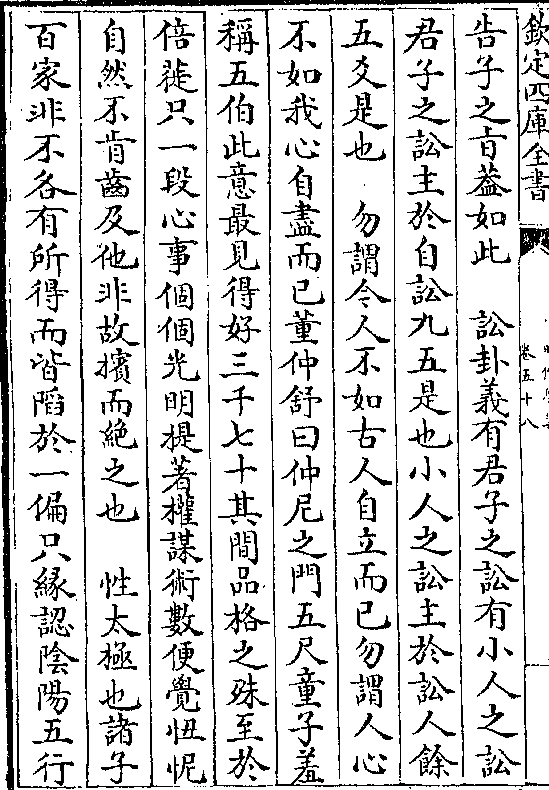 欽定四庫全書
卷五十八
告子之㫖葢如此　訟卦義有君子之訟有小人之訟
君子之訟主於自訟九五是也小人之訟主於訟人餘
五爻是也　勿謂今人不如古人自立而已勿謂人心
不如我心自盡而已董仲舒曰仲尼之門五尺童子羞
稱五伯此意最見得好三千七十其間品格之殊至於
倍蓰只一段心事個個光明提著權謀術數便覺忸怩
自然不肯齒及他非故擯而絶之也　性太極也諸子
百家非不各有所得而皆陷於一偏只縁認陰陽五行